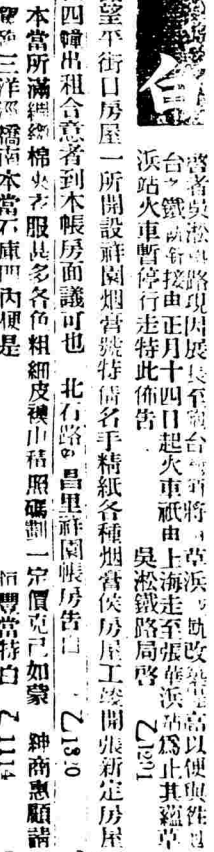 白
啓者吳淞鐵路現因展長至砲台將草浜軌改高以便與性
台之鐵銜接由正月十四日起火車祇由上海走至張華浜站爲止其蘊草
浜站火車暫停行走特此佈告
吳淞鐵路局啓
乙1291
望平街口房屋一所開設祥園烟膏號特倩名手精紙各種烟膏俟房屋工竣開張新定房屋
四幢出租合意者到本帳房面議可也
北石路昌里祥園帳房告白
乙1320
本當所滿綢緞棉夾衣服比多各色粗細皮襖山積照碼劃一定價克己如蒙
紳商惠顧請
三洋涇橋南本當石庫門內便是
恒豐當特白
乙1114